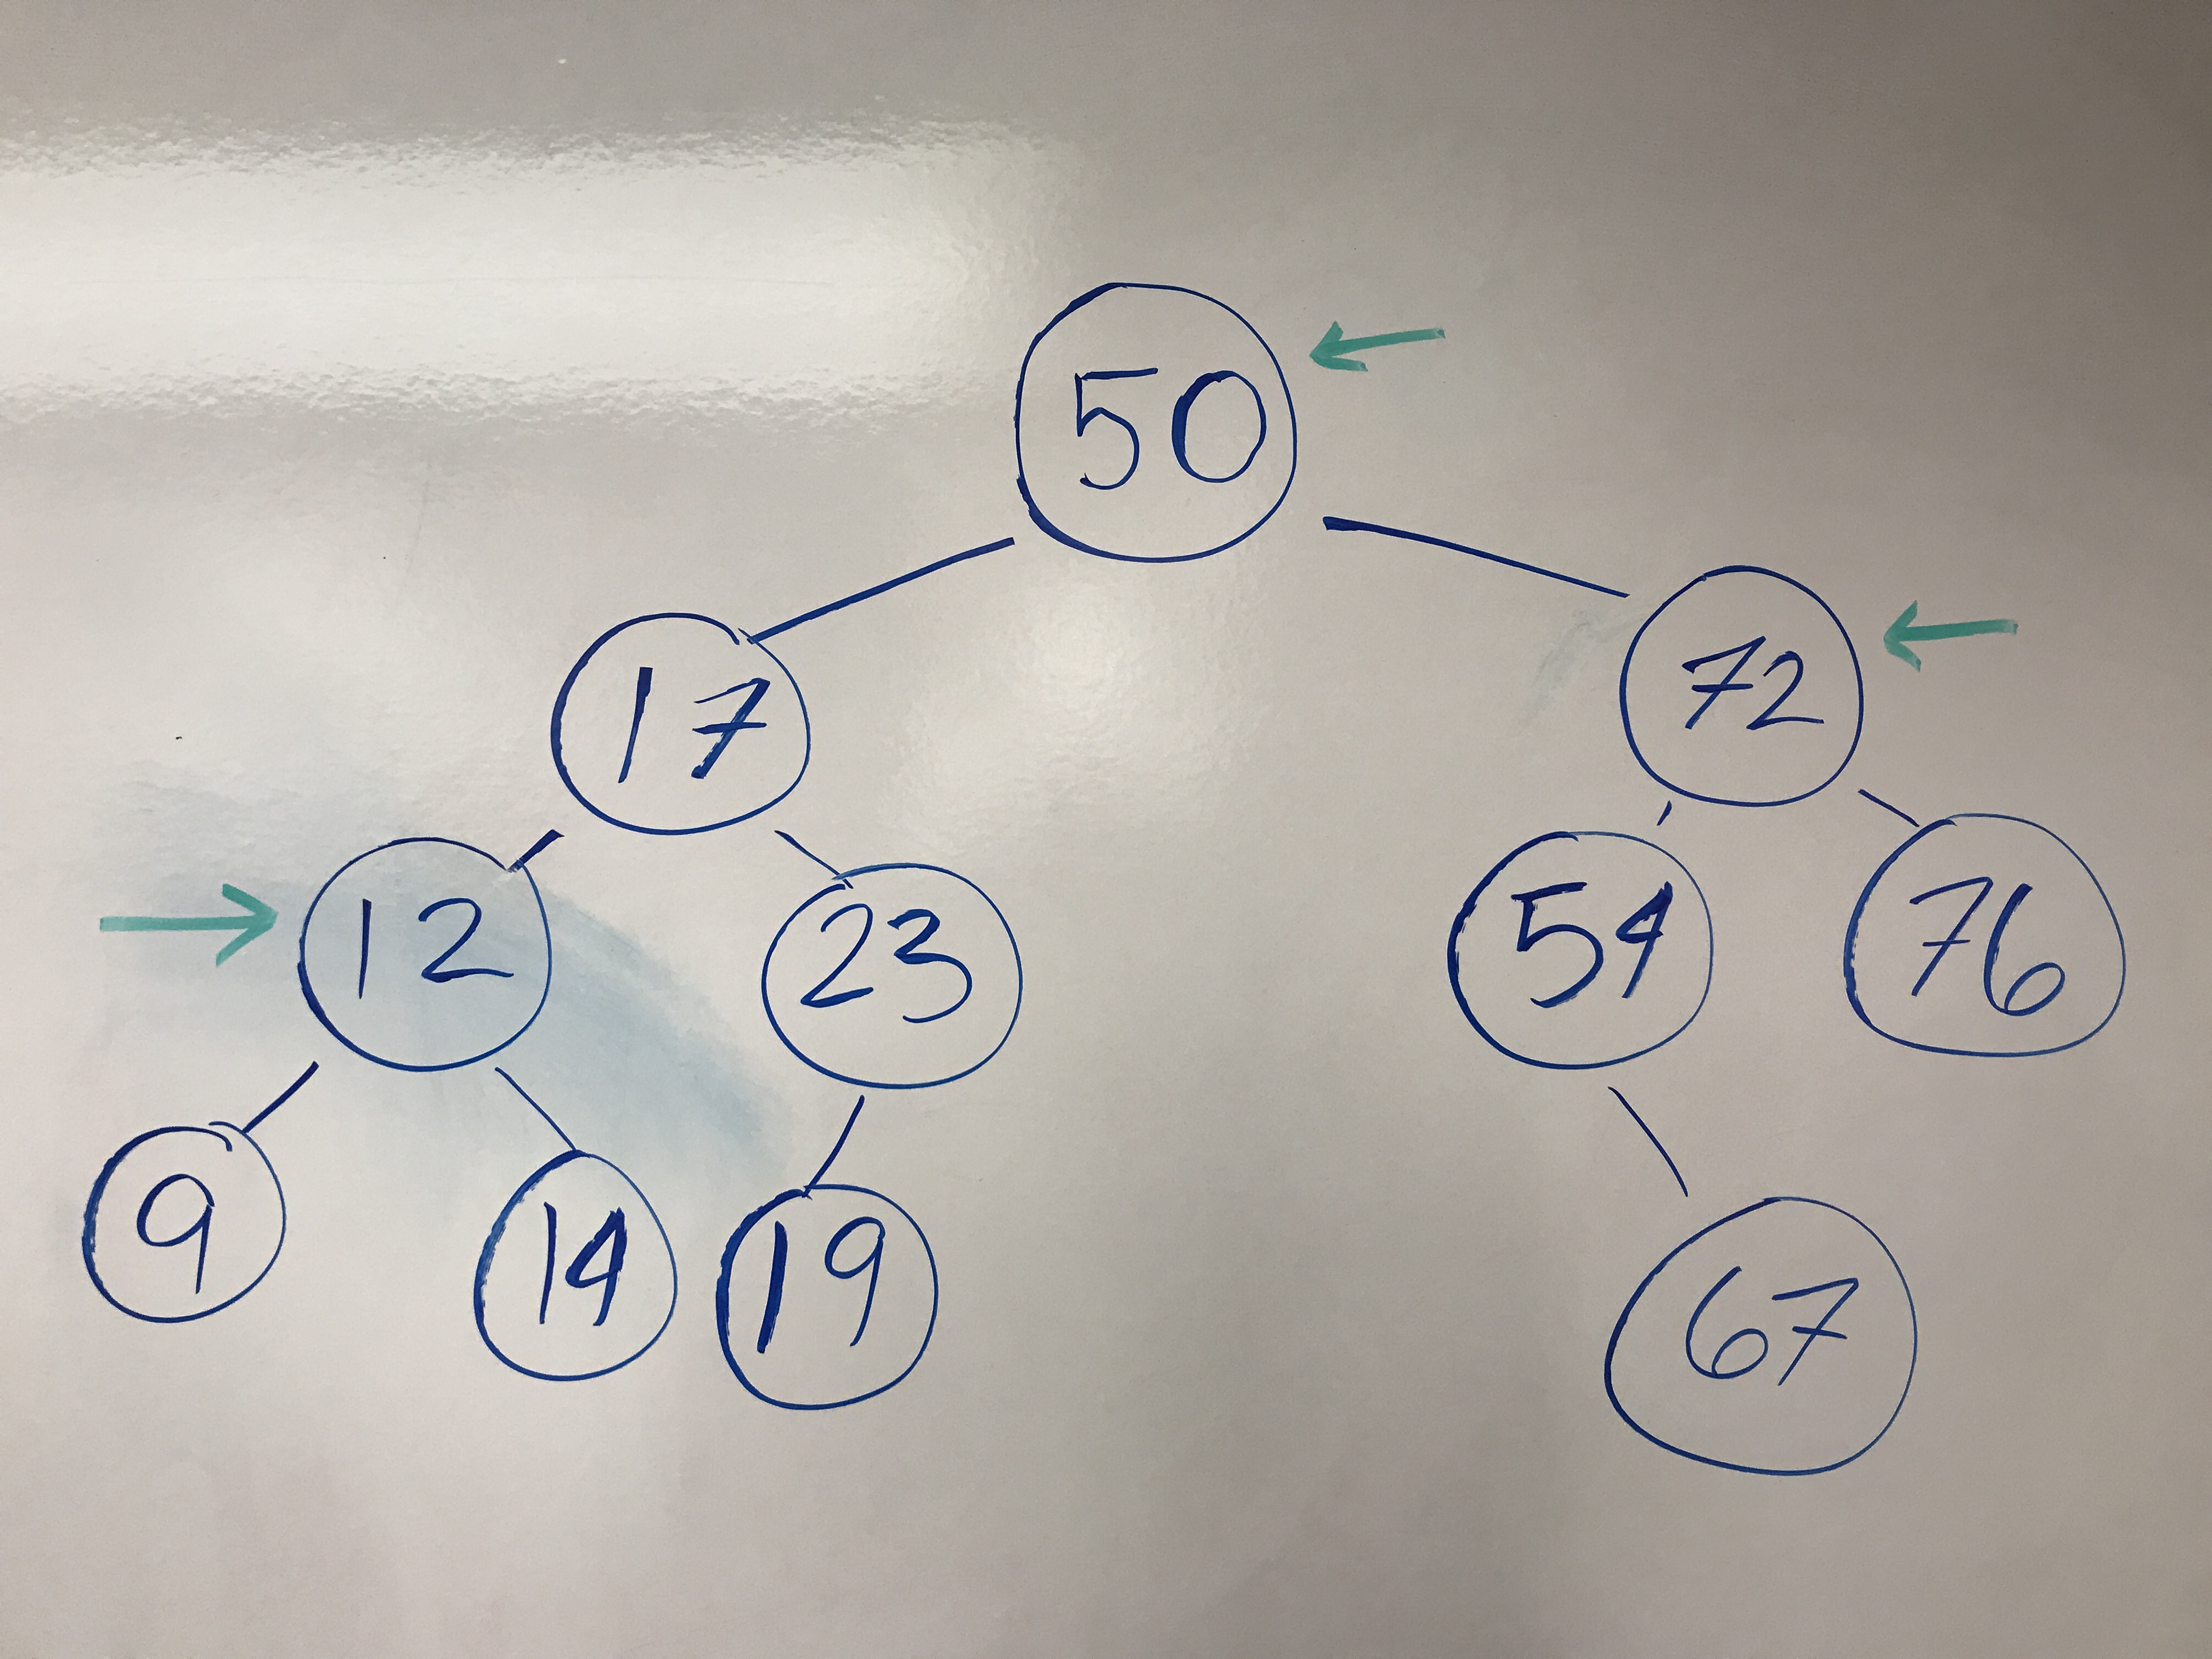 50
17 72
12 23 54 76
9 14 19 67